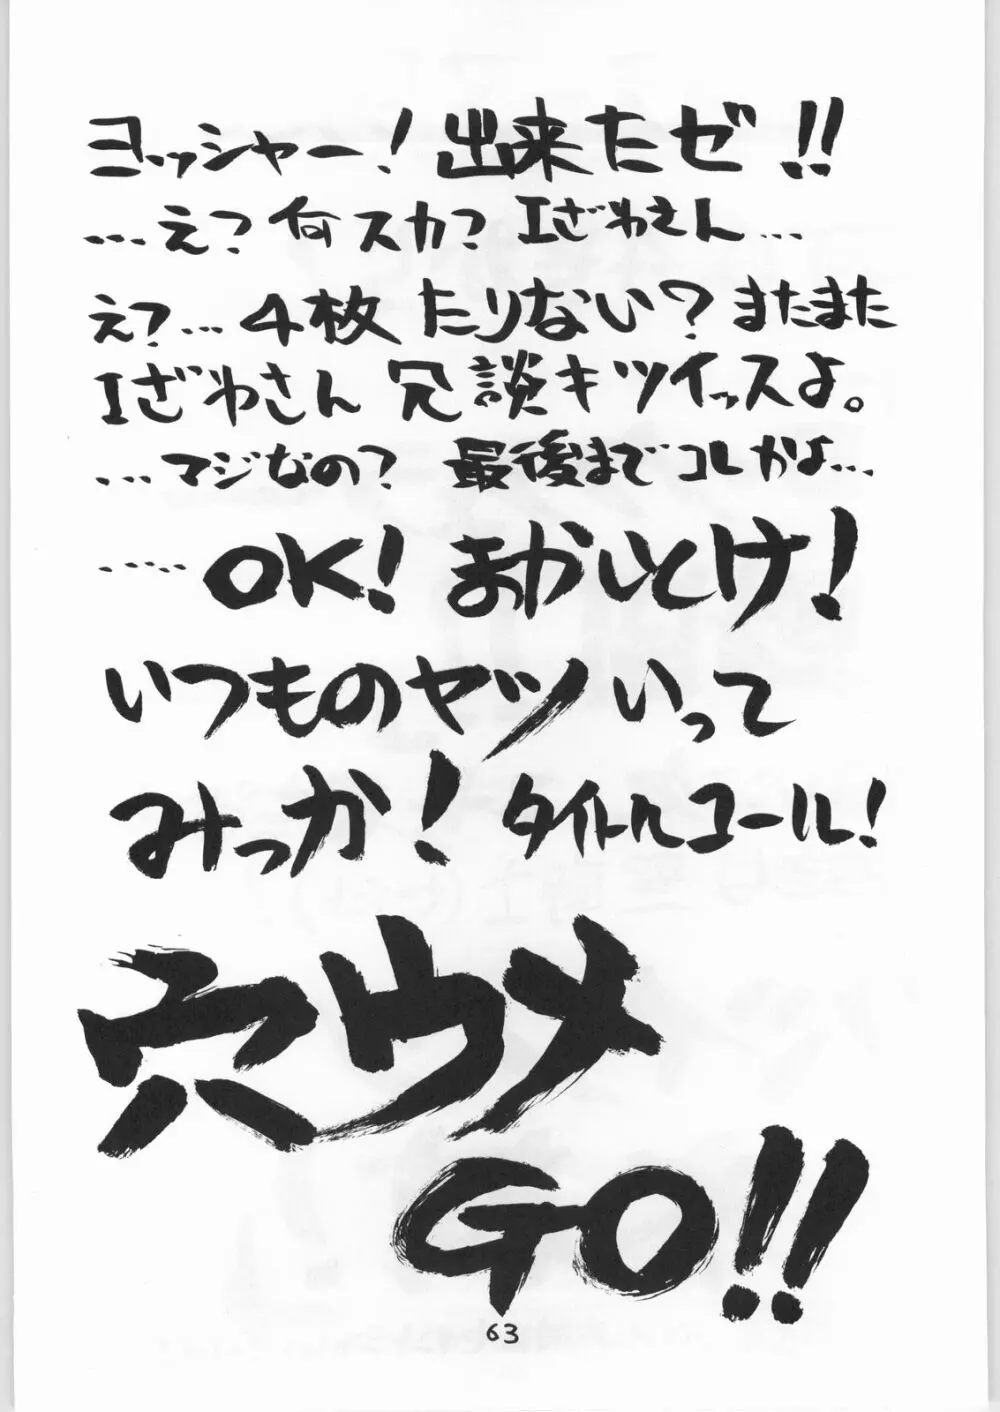 ヨッシャー！出来たゼ!!
…え？何スカ？Iざわさん…
え？…4枚たりない？またまた
Iざわさん 冗談キツイッスよ。
…マジなの？ 最後までコレかよ…
……OK！まかしとけ！
いつものヤツいって
みっか！タイトルコール！
穴ウメ
GO!!
63